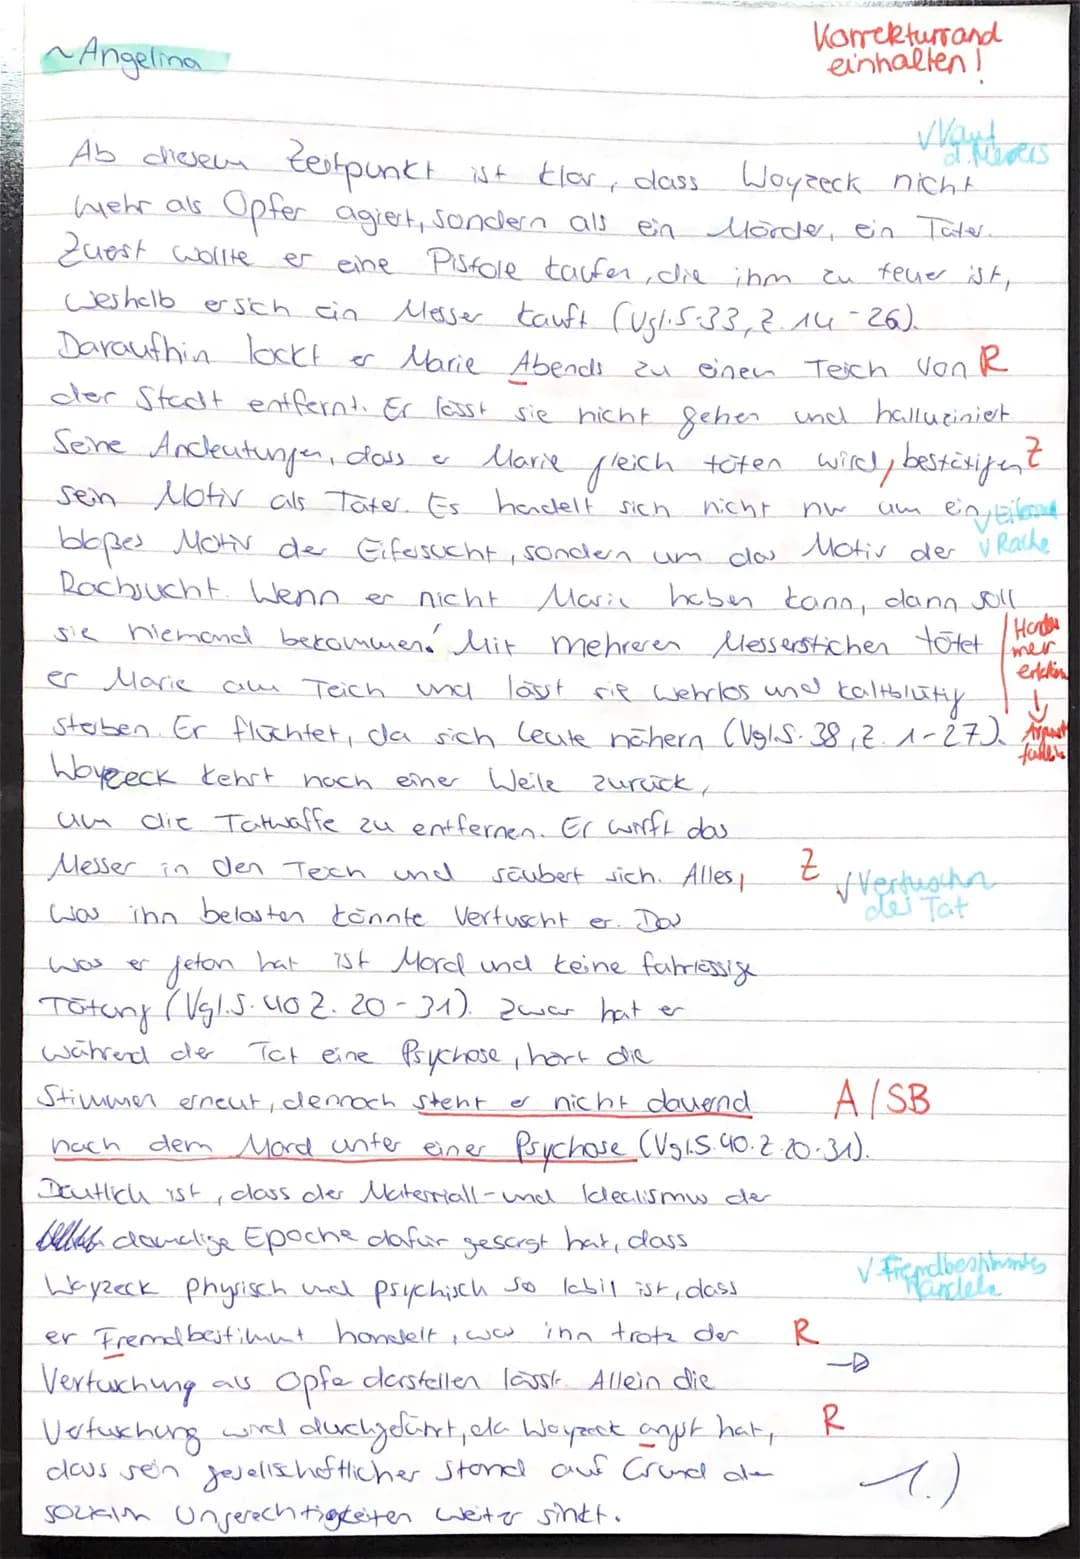 ~ Angelina
Korrekturrand
einhalten!
√ Kauf
d. Messers
Ab diesem Zeitpunkt ist klar, dass Woyzeck nicht
mehr als Opfer agiert, sondern als ein Mörder, ein Täter.
Zuerst wollte er eine Pistole kaufen, die ihm zu teuer ist,
weshalb er sich ein Messer kauft (Vgl. S. 33, Z. 14-26).
Daraufhin lockt er Marie Abends zu einen Teich von R
der Stadt entfernt. Er lässt sie nicht gehen und halluziniert
Seine Andeutungen, dass er Marie gleich töten wird, bestätigen Z
sein Motiv als Täter. Es handelt sich nicht nur um ein
bloßes Motiv der Eifersucht, sondern um das Motiv der √ Rache
Rachsucht. Wenn er nicht Marie haben kann, dann soll
sie niemand bekommen! Mit mehreren Messerstichen tötet
er Marie am Teich und lässt sie wehrlos und kaltblütig
sterben. Er flüchtet, da sich Leute nähern (Vgl. S. 38, Z. 1-27).
Woyzeck kehrt nach einer Weile zurück,
um die Tatwaffe zu entfernen. Er wirft das
Messer in den Teich und säubert sich. Alles, Z
√ Vertuschen
der Tat
was ihn belasten könnte vertuscht er. Das
was er getan hat ist Mord und keine fahrlässige
Tötung (Vgl. S. 40 Z. 20-31). Zwar hat er
während der Tat eine Psychose, hört die
Stimmen erneut, dennoch steht er nicht dauernd A/SB
nach dem Mord unter einer Psychose (Vgl. S. 40. Z. 20-31).
Deutlich ist, dass der Materiall- und Idealismus der
damalige Epoche dafür gesorgt hat, dass
Woyzeck physisch und psychisch so labil ist, dass
√ Fremdbestimmtes
Handeln
er Fremdbestimmt handelt, was ihn trotz der R
Vertuschung als Opfer darstellen lässt. Allein die
Vertuschung wird durchgeführt, da Woyzeck angst hat, R
dass sein gesellschaftlicher Stand auf Grund der
sozialen Ungerechtigkeiten weiter sinkt.
1.)